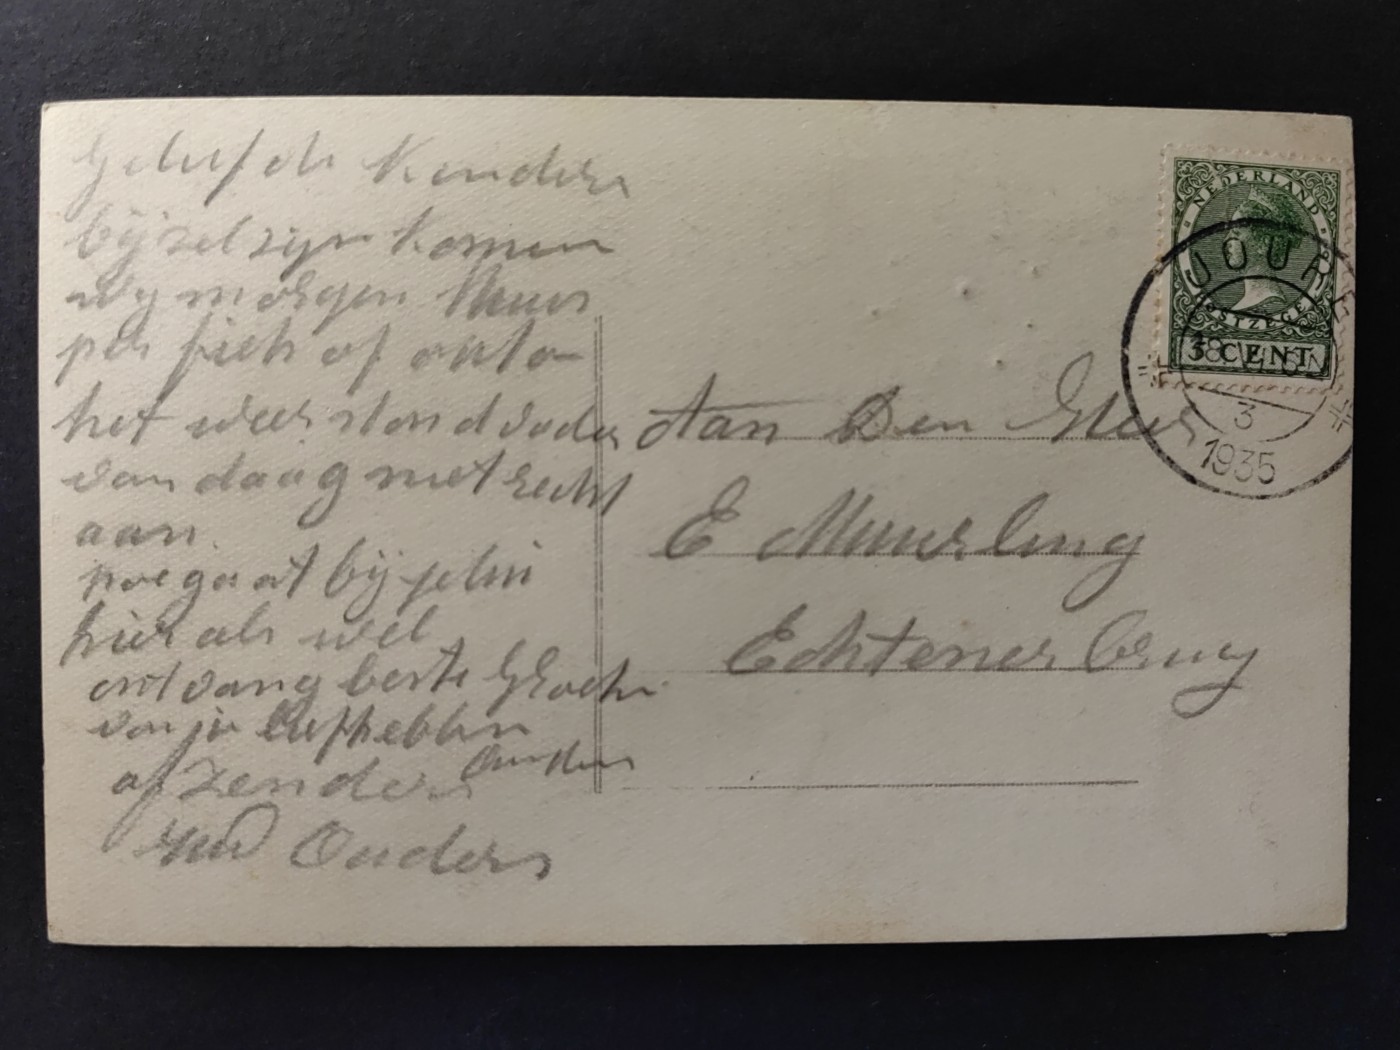 Geliefde Kinders
bij zel zijn komen
wij morgen
per fiets of auto
het weer stond vader
van daag niet recht
aan.
hoe gaat bij jelui
hier als wel
ontvang beste Groete
van je liefhebben
Ouders
afzender
Ouders
Aan Den Heer
E Muurling
Echtenerbrug
NEDERLAND
POSTZEGEL
3 CENT
JOURE
3
1935